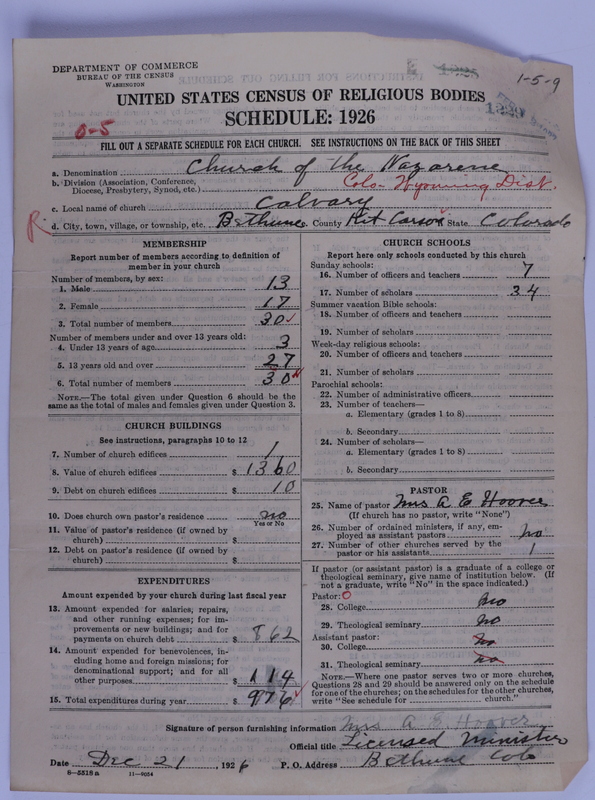 DEPARTMENT OF COMMERCE
BUREAU OF THE CENSUS
WASHINGTON
1-5-9
UNITED STATES CENSUS OF RELIGIOUS BODIES
SCHEDULE: 1926
0-5
FILL OUT A SEPARATE SCHEDULE FOR EACH CHURCH. SEE INSTRUCTIONS ON THE BACK OF THIS SHEET
a. Denomination Church of the Nazarene
b. Division (Association, Conference, Diocese, Presbytery, Synod, etc.) Colo-Wyoming Dist.
c. Local name of church Calvary
R d. City, town, village, or township, etc. Bethune County Kit Carson State Colorado
MEMBERSHIP
Report number of members according to definition of member in your church
Number of members, by sex:
1. Male 13
2. Female 17
3. Total number of members 30
Number of members under and over 13 years old:
4. Under 13 years of age 3
5. 13 years old and over 27
6. Total number of members 30
NOTE.—The total given under Question 6 should be the
same as the total of males and females given under Question 3.
CHURCH BUILDINGS
See instructions, paragraphs 10 to 12
7. Number of church edifices 1
8. Value of church edifices $ 1360
9. Debt on church edifices $ 10
10. Does church own pastor's residence no
Yes or No
11. Value of pastor's residence (if owned by
church) $
12. Debt on pastor's residence (if owned by
church) $
EXPENDITURES
Amount expended by your church during last fiscal year
13. Amount expended for salaries, repairs,
and other running expenses; for im-
provements or new buildings; and for
payments on church debt $ 862
14. Amount expended for benevolences, in-
cluding home and foreign missions; for
denominational support; and for all
other purposes $ 114
15. Total expenditures during year $ 976
CHURCH SCHOOLS
Report here only schools conducted by this church
Sunday schools:
16. Number of officers and teachers 7
17. Number of scholars 34
Summer vacation Bible schools:
18. Number of officers and teachers
19. Number of scholars
Week-day religious schools:
20. Number of officers and teachers
21. Number of scholars
Parochial schools:
22. Number of administrative officers
23. Number of teachers—
a. Elementary (grades 1 to 8)
b. Secondary
24. Number of scholars—
a. Elementary (grades 1 to 8)
b. Secondary
PASTOR
25. Name of pastor Mrs A E Hoover
(If church has no pastor, write "None")
26. Number of ordained ministers, if any, em-
ployed as assistant pastors no
27. Number of other churches served by the
pastor or his assistants 1
If pastor (or assistant pastor) is a graduate of a college or
theological seminary, give name of institution below. (If
not a graduate, write "No" in the space indicated.)
Pastor: O
28. College no
29. Theological seminary no
Assistant pastor:
30. College no
31. Theological seminary no
NOTE.—Where one pastor serves two or more churches,
Questions 28 and 29 should be answered only on the schedule
for one of the churches; on the schedules for the other churches,
write "See schedule for church."
Signature of person furnishing information Mrs A E Hoover
Official title Licensed Minister
Date Dec 21, 1926 P. O. Address Bethune Colo
8-5518 a 11-9054